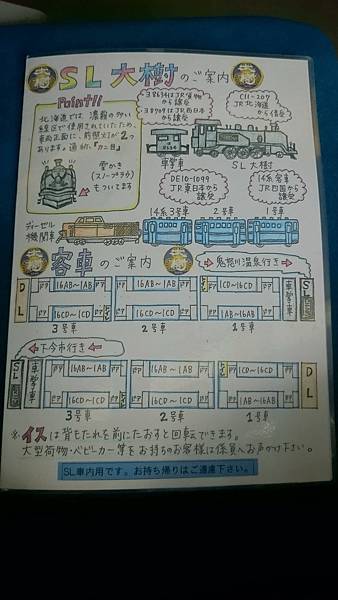 SL大樹のご案内
Point!!
北海道では、濃霧の多い
線区で使用されていたため、
車両正面に、前照灯が2つ
あります。通称、『カニ目』
雪かき
(スノープラウ)
もついてます
38634はJR貨物
から譲受
38709はJR西日本
から譲受
C11-207
JR北海道
から借受
車掌車
SL大樹
DE10-1099
JR東日本から
譲受
14系客車
JR四国から
譲受
ディーゼル
機関車
14系3号車
2号車
1号車
客車のご案内
鬼怒川温泉行き
DL
16AB~1AB
16AB~1AB
1CD~16CD
16CD~1CD
16CD~1CD
1AB~16AB
車掌車
SL
3号車
2号車
1号車
下今市行き
SL
車掌車
16AB~1AB
16AB~1AB
1CD~16CD
16CD~1CD
16CD~1CD
1AB~16AB
DL
3号車
2号車
1号車
※イスは背もたれを前にたおすと回転できます。
大型荷物・ベビーカー等をお持ちのお客様は係員へお声がけ下さい。
SL車内用です。お持ち帰りはご遠慮下さい。